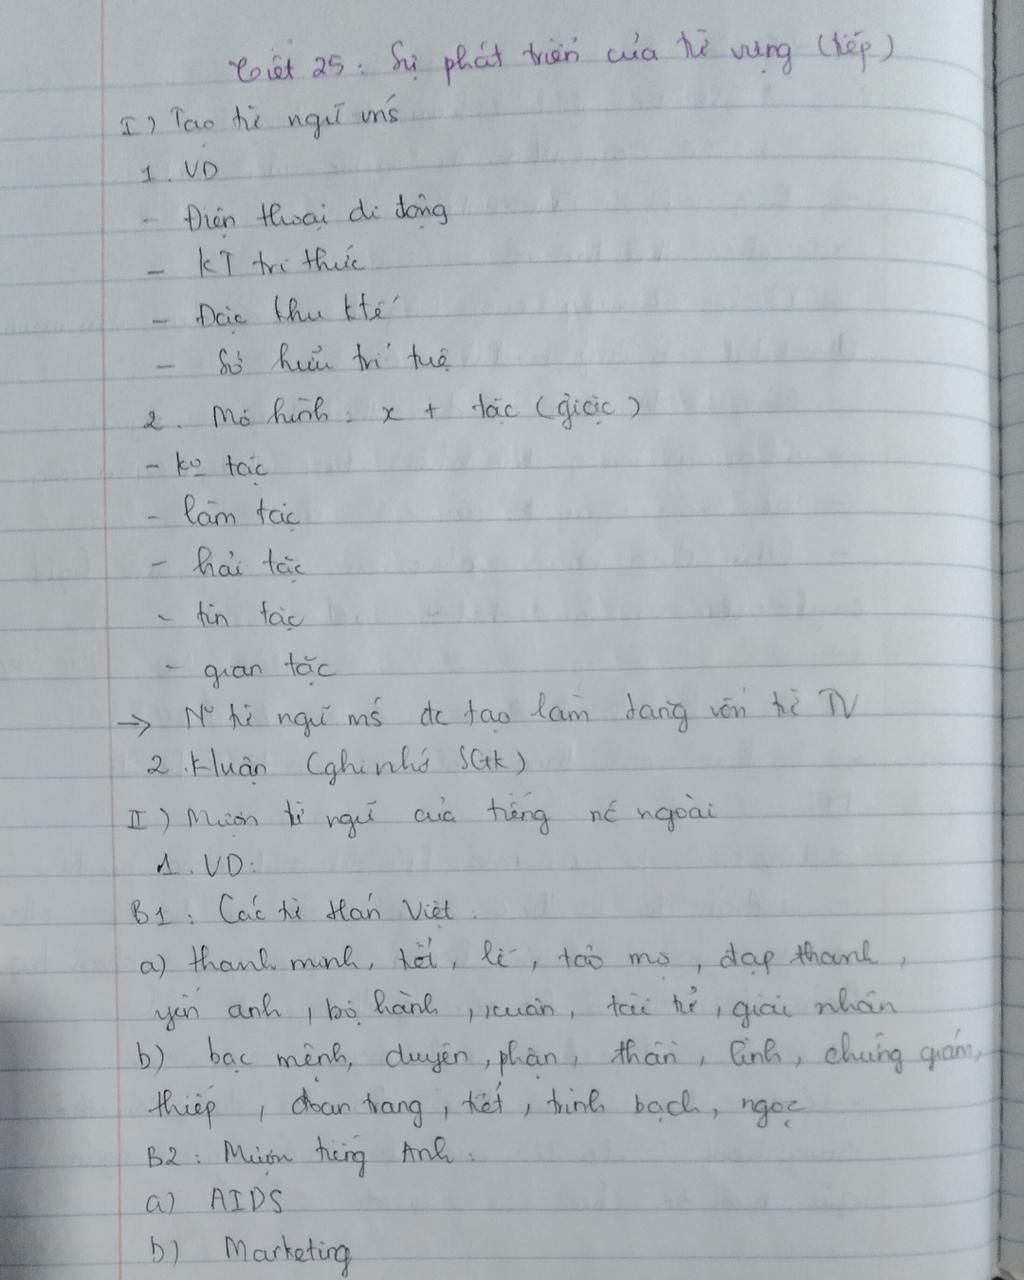 Tiết 25: Sự phát triển của từ vựng (tiếp)
I) Tạo từ ngữ mới
1. VD
- Điện thoại di động
- KT tri thức
- Đặc khu ktế
- Sở hữu trí tuệ
2. Mô hình: x + tặc (giặc)
- ko tặc
- lâm tặc
- hải tặc
- tin tặc
- gian tặc
→ N~ từ ngữ mới đc tạo làm tăng vốn từ TV
2. Kluận (ghi nhớ SGK)
II) Mượn từ ngữ của tiếng nc ngoài
1. VD:
B1: Các từ Hán Việt:
a) thanh minh, tiết, lễ, tảo mộ, đạp thanh,
yến anh, bộ hành, xuân, tài tử, giai nhân
b) bạc mệnh, duyên, phận, thần, linh, chứng giám,
thiếp, đoan trang, tiết, trinh bạch, ngọc
B2: Mượn tiếng Anh:
a) AIDS
b) Marketing